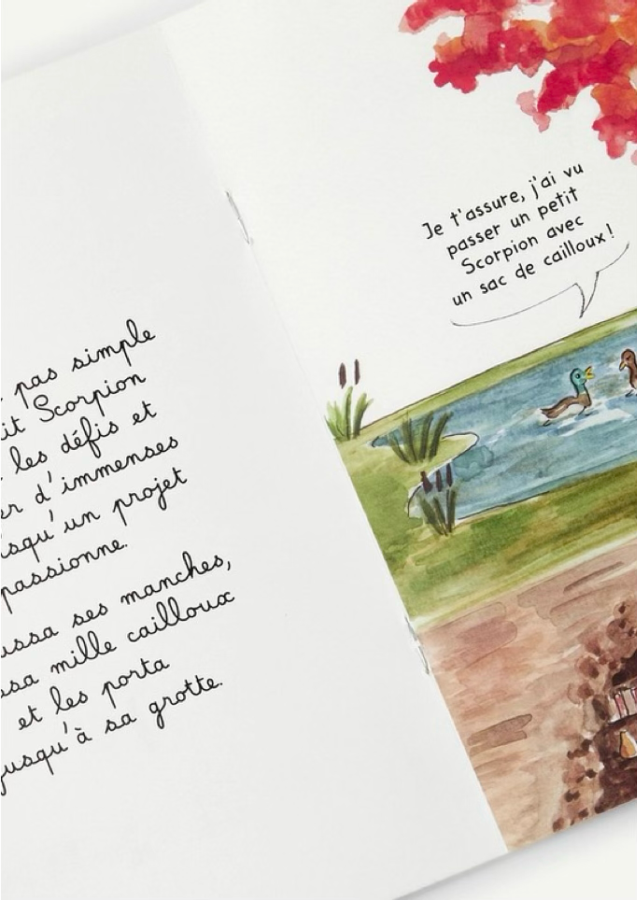 pas simple
Scorpion
les défis et
d'immenses
un projet
passionne.
ses manches,
mille cailloux
et les porta
jusqu'à sa grotte.
Je t'assure, j'ai vu
passer un petit
Scorpion avec
un sac de cailloux!